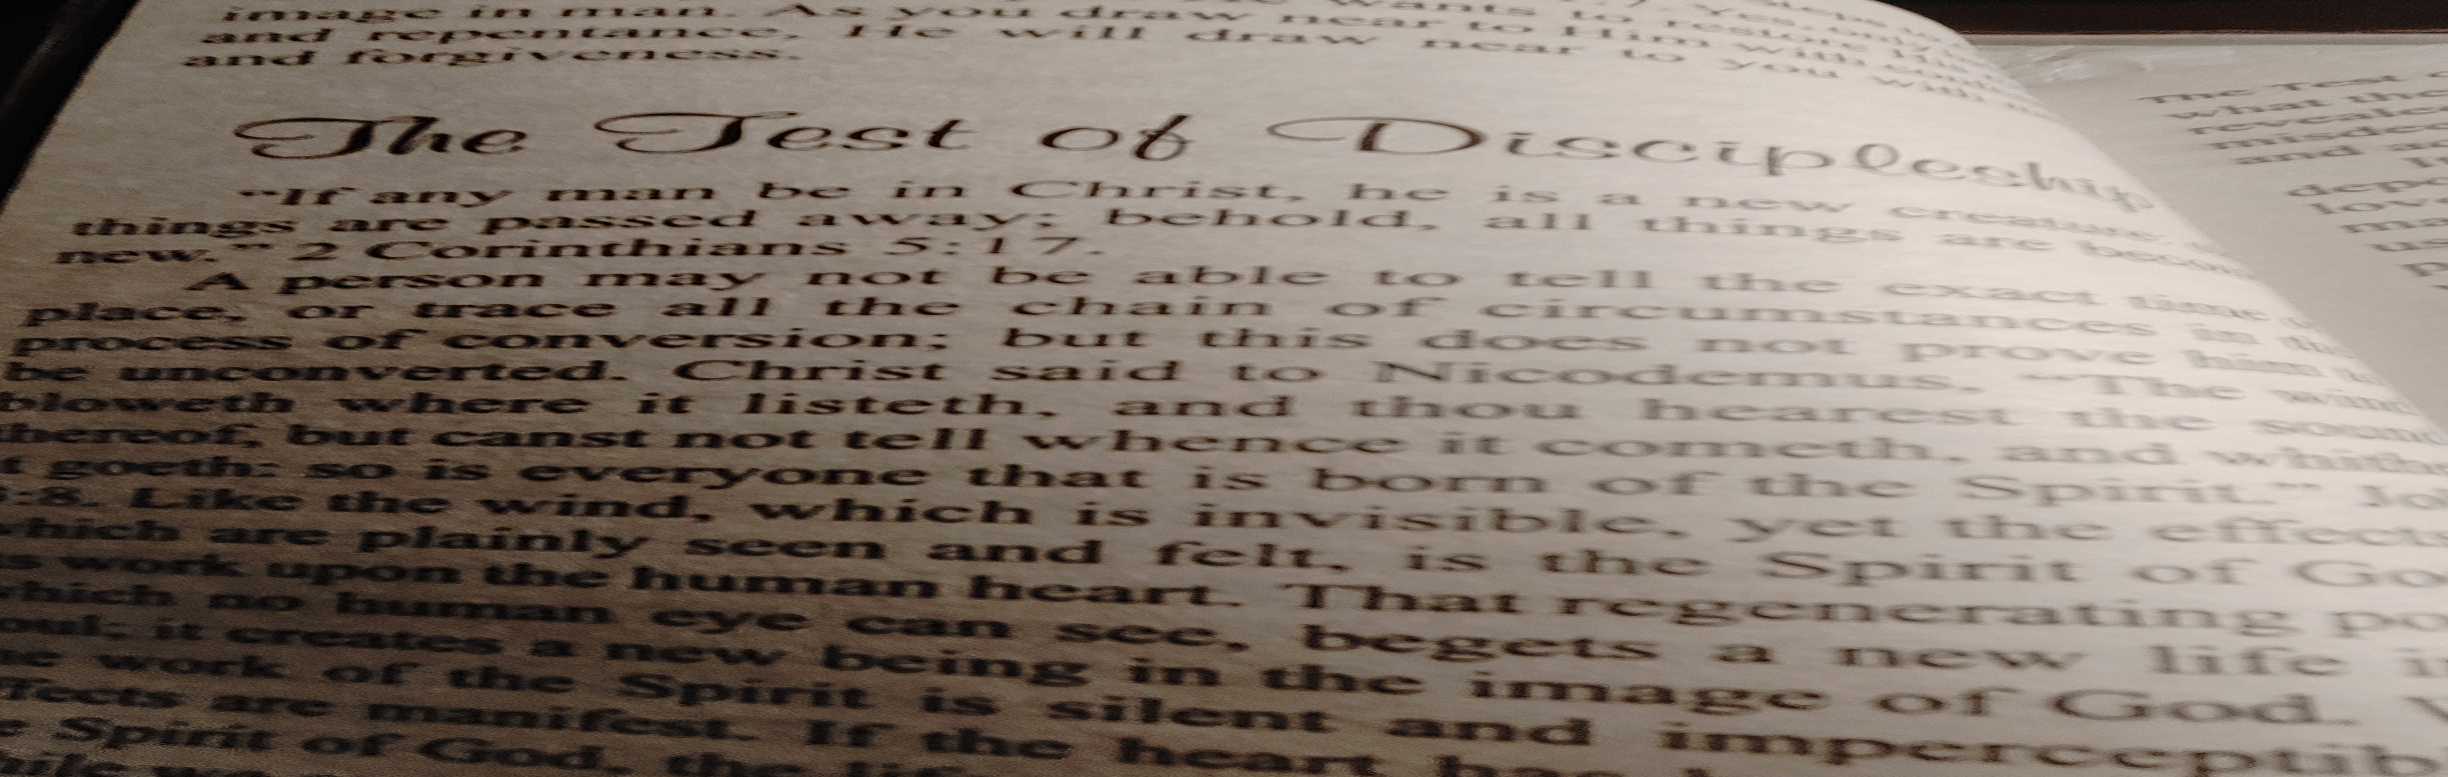 image in man. As you draw near to Him with
and repentance, He will draw near to you with
and forgiveness.
The Test of Discipleship
"If any man be in Christ, he is a new creature:
things are passed away; behold, all things are
new." 2 Corinthians 5:17.
A person may not be able to tell the exact time
place, or trace all the chain of circumstances in the
process of conversion; but this does not prove him to
be unconverted. Christ said to Nicodemus, "The wind
bloweth where it listeth, and thou hearest the sound
thereof, but canst not tell whence it cometh, and
it goeth: so is everyone that is born of the Spirit."
:8. Like the wind, which is invisible, yet the effects
which are plainly seen and felt, is the Spirit of
work upon the human heart. That regenerating
which no human eye can see, begets a new life
it creates a new being in the image of God.
work of the Spirit is silent and
are manifest. If the heart has
Spirit of God, the